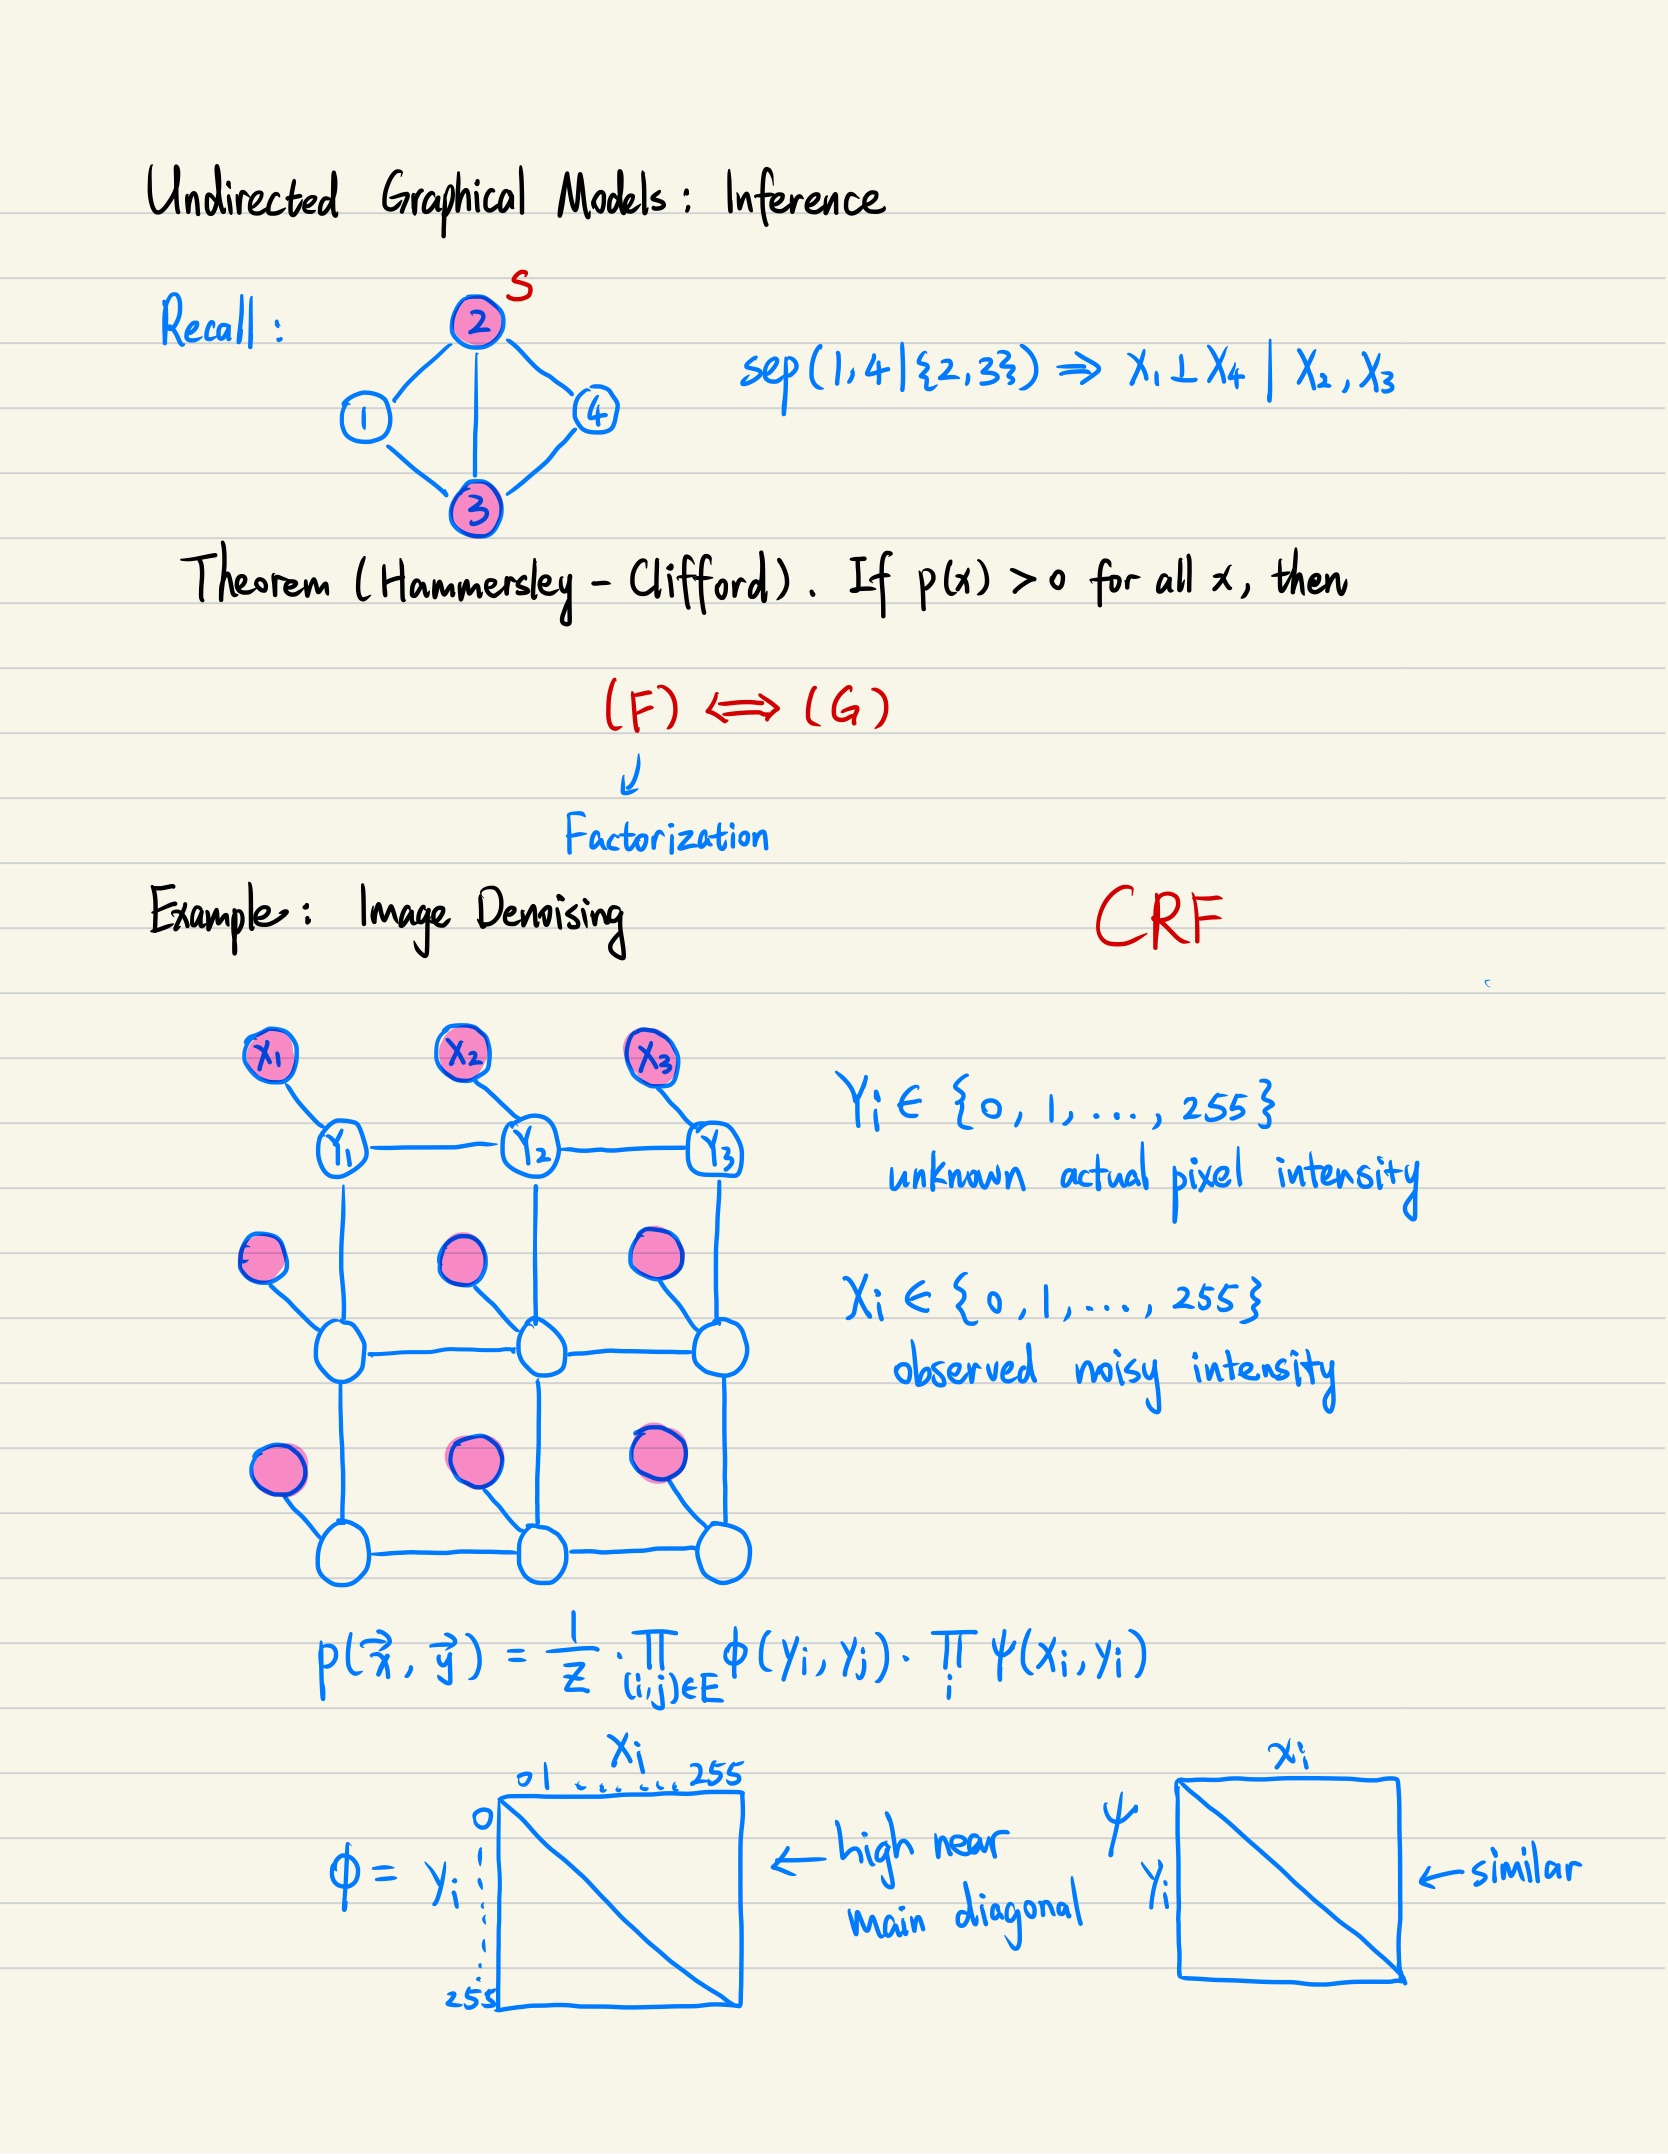 Undirected Graphical Models: Inference
S
Recall:
2
1
4
3
sep(1,4|{2,3}) ⇒ X₁ ⊥ X₄ | X₂, X₃
Theorem (Hammersley - Clifford). If p(x) > 0 for all x, then
(F) ⇔ (G)
Factorization
Example: Image Denoising
CRF
X₁ X₂ X₃
Y₁ Y₂ Y₃
Yᵢ ∈ {0, 1, ..., 255}
unknown actual pixel intensity
Xᵢ ∈ {0, 1, ..., 255}
observed noisy intensity
p(x⃗, y⃗) = 1/Z · ∏_{(i,j)∈E} ϕ(yᵢ, yⱼ) · ∏_i ψ(xᵢ, yᵢ)
Xᵢ
0 1 ...... 255
0
ϕ = yᵢ
255
← high near
main diagonal
xᵢ
ψ
yᵢ
← similar